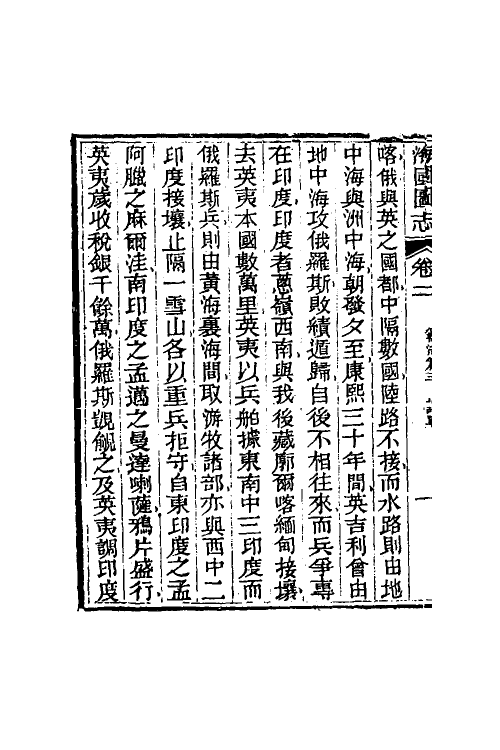 海國圖志
卷二
喀俄與英之國都中隔數國陸路不接而水路則由地
中海與洲中海朝發夕至康熙三十年間英吉利曾由
地中海攻俄羅斯敗績遁歸自後不相往來而兵爭專
在印度印度者蔥嶺西南與我後藏廓爾喀緬甸接壤
去英夷本國數萬里英夷以兵舶據東南中三印度而
俄羅斯兵則由黃海裏海間取游牧諸部亦與西中二
印度接壤止隔一雪山各以重兵拒守自東印度之孟
阿臘之麻爾洼南印度之孟邁之曼達喇薩鴉片盛行
英夷歲收稅銀千餘萬俄羅斯覬覦之及英夷調印度